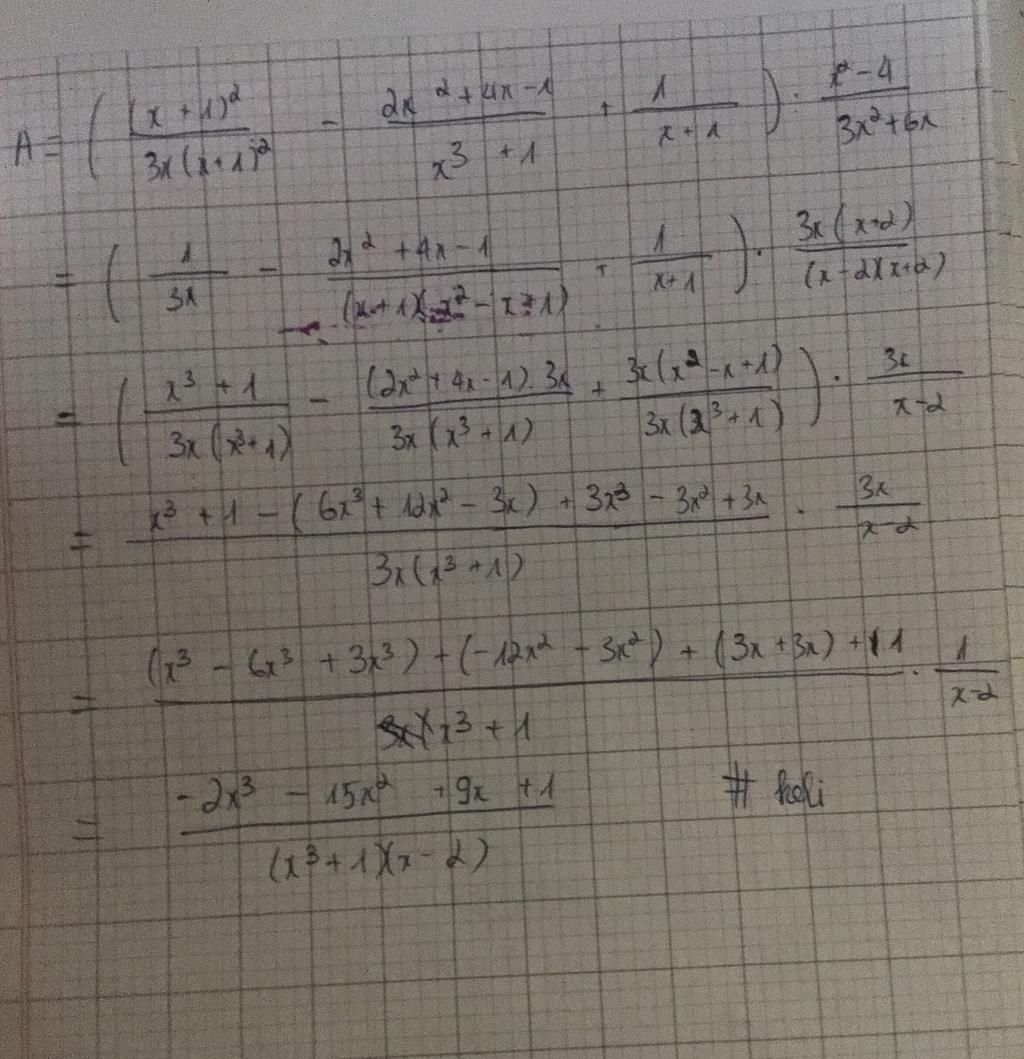 A = ( (x + 1)² / 3x(x + 1)² - 2x² + 4x - 1 / x³ + 1 + 1 / x + 1 ) : x² - 4 / 3x² + 6x
= ( 1 / 3x - 2x² + 4x - 1 / (x + 1)(x² - x + 1) + 1 / x + 1 ) . 3x(x + 2) / (x - 2)(x + 2)
= ( x³ + 1 / 3x(x³ + 1) - (2x² + 4x - 1) . 3x / 3x(x³ + 1) + 3x(x² - x + 1) / 3x(x³ + 1) ) . 3x / x - 2
= x³ + 1 - (6x³ + 12x² - 3x) + 3x³ - 3x² + 3x / 3x(x³ + 1) . 3x / x - 2
= (x³ - 6x³ + 3x³) + (-12x² - 3x²) + (3x + 3x) + 1 / x³ + 1 . 1 / x - 2
= -2x³ - 15x² + 9x + 1 / (x³ + 1)(x - 2)
#